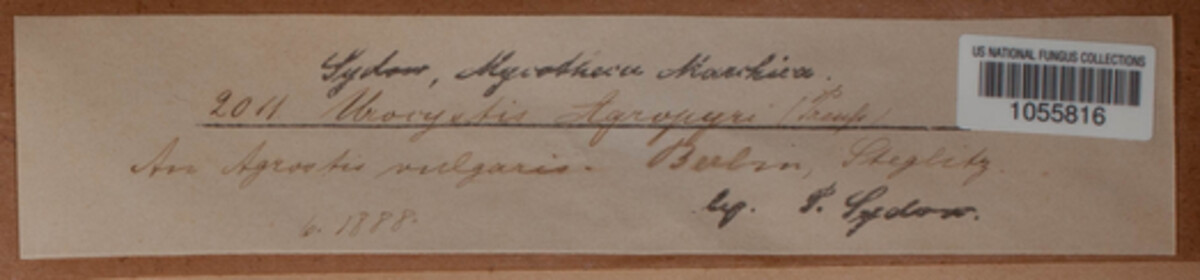 Sydow, Mycotheca Marchica.
US NATIONAL FUNGUS COLLECTIONS
1055816
2011 Urocystis Agropyri (Preuß)
An Agrostis vulgaris. Berlin, Steglitz.
leg. P. Sydow.
6. 1888.